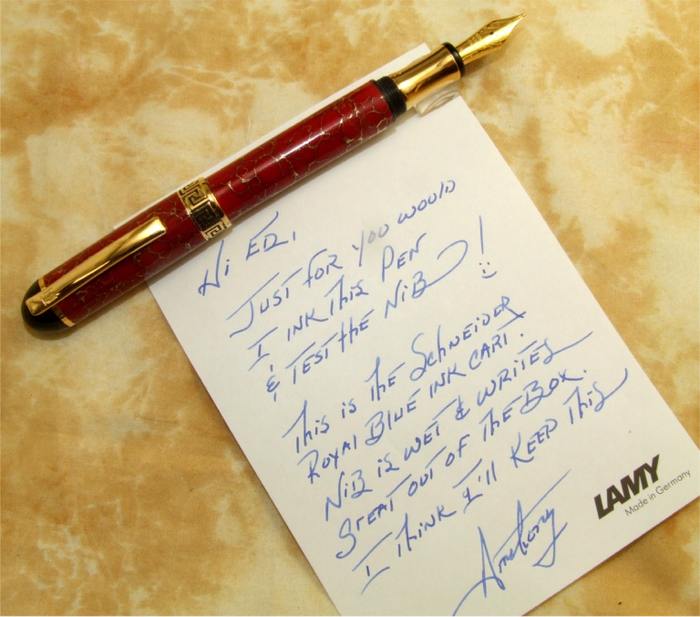 Hi ED,
JUST FOR YOU WOULD
I INK THIS PEN
& TEST the NiB!
This is the Schneider
Royal Blue INK CART.
NiB is WET & WRITES
Streat out of the Box.
I Think I'll KEEP This
Anthony
LAMY
Made in Germany